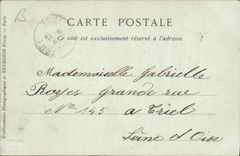 B
CARTE POSTALE
Ce côté est exclusivement réservé à l'adresse
Mademoiselle Gabrielle
Royes grande rue
No 145 a Triel
Seine et Oise
Etablissements Photographiques de NEURDEIN Frères. — Paris